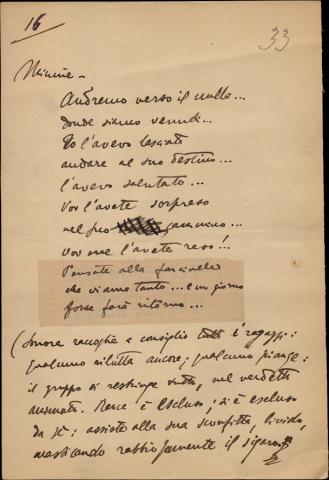 16
33
Andremo verso il nulla...
donde siamo venuti...
Io l'avevo lasciato
andare al suo destino...
l'avevo salutato...
Voi l'avete sorpreso
nel suo cammino...
voi me l'avete reso!...
Pensate alla fanciulla
che vi ama tanto... e un giorno
forse farà ritorno...
raccoglie a consiglio tutti i ragazzi:
qualcuno rilutta ancora; qualcuno piange:
il gruppo si restringe tutto, nel verdetto
Rance è escluso; si è escluso
da sé: assiste alla sua sconfitta, livido,
masticando rabbiosamente il sigaro)